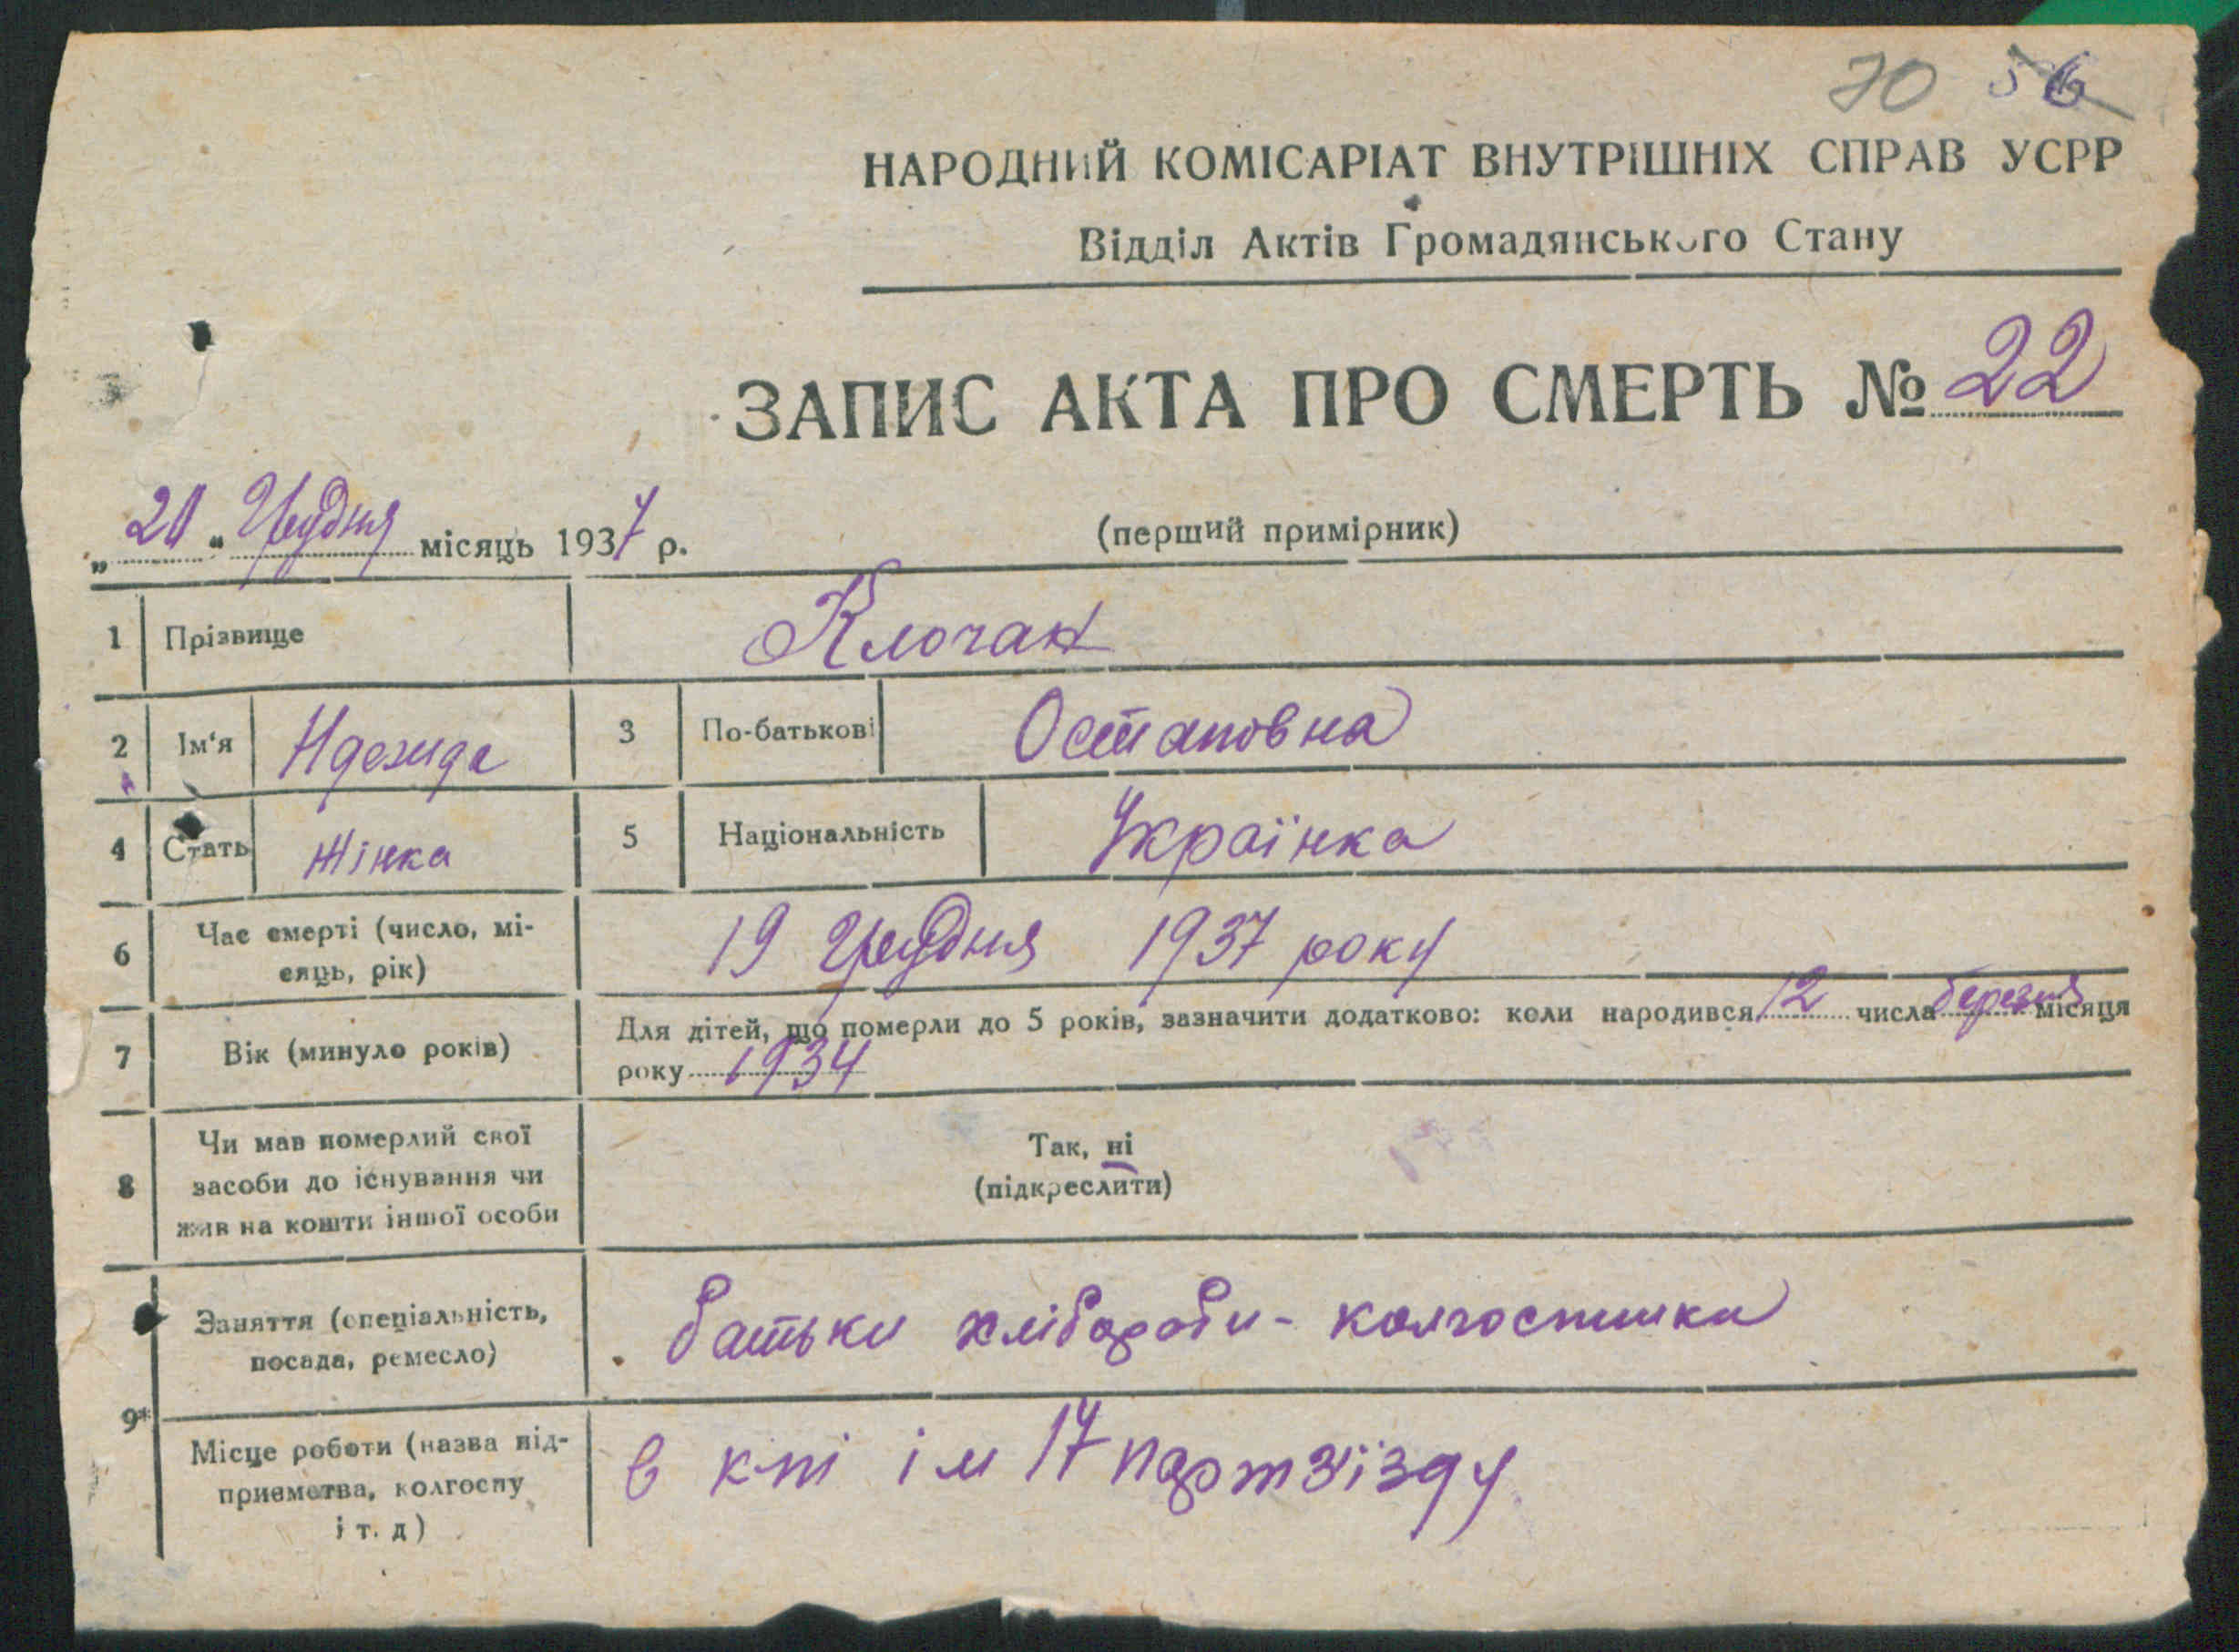 70 56
НАРОДНИЙ КОМІСАРІАТ ВНУТРІШНІХ СПРАВ УСРР
Відділ Актів Громадянського Стану
ЗАПИС АКТА ПРО СМЕРТЬ № 22
„20“ Грудня місяць 1937 р.
(перший примірник)
1 Прізвище Клочак
2 Ім'я Ндежда 3 По-батькові Остаповна
4 Стать Жінка 5 Національність Українка
6 Час смерті (число, мі-
сяць, рік) 19 Грудня 1937 року
7 Вік (минуло років) Для дітей, що померли до 5 років, зазначити додатково: коли народився 12 числа березня місяця
року 1934
8 Чи мав померлий свої
засоби до існування чи
жив на кошти іншої особи
Так, ні
(підкреслити)
9*
Заняття (спеціальність,
посада, ремесло) батьки хлібороби - колгоспники
Місце роботи (назва під-
приємства, колгоспу
і т. д) в кпі ім 17 партз'їзду